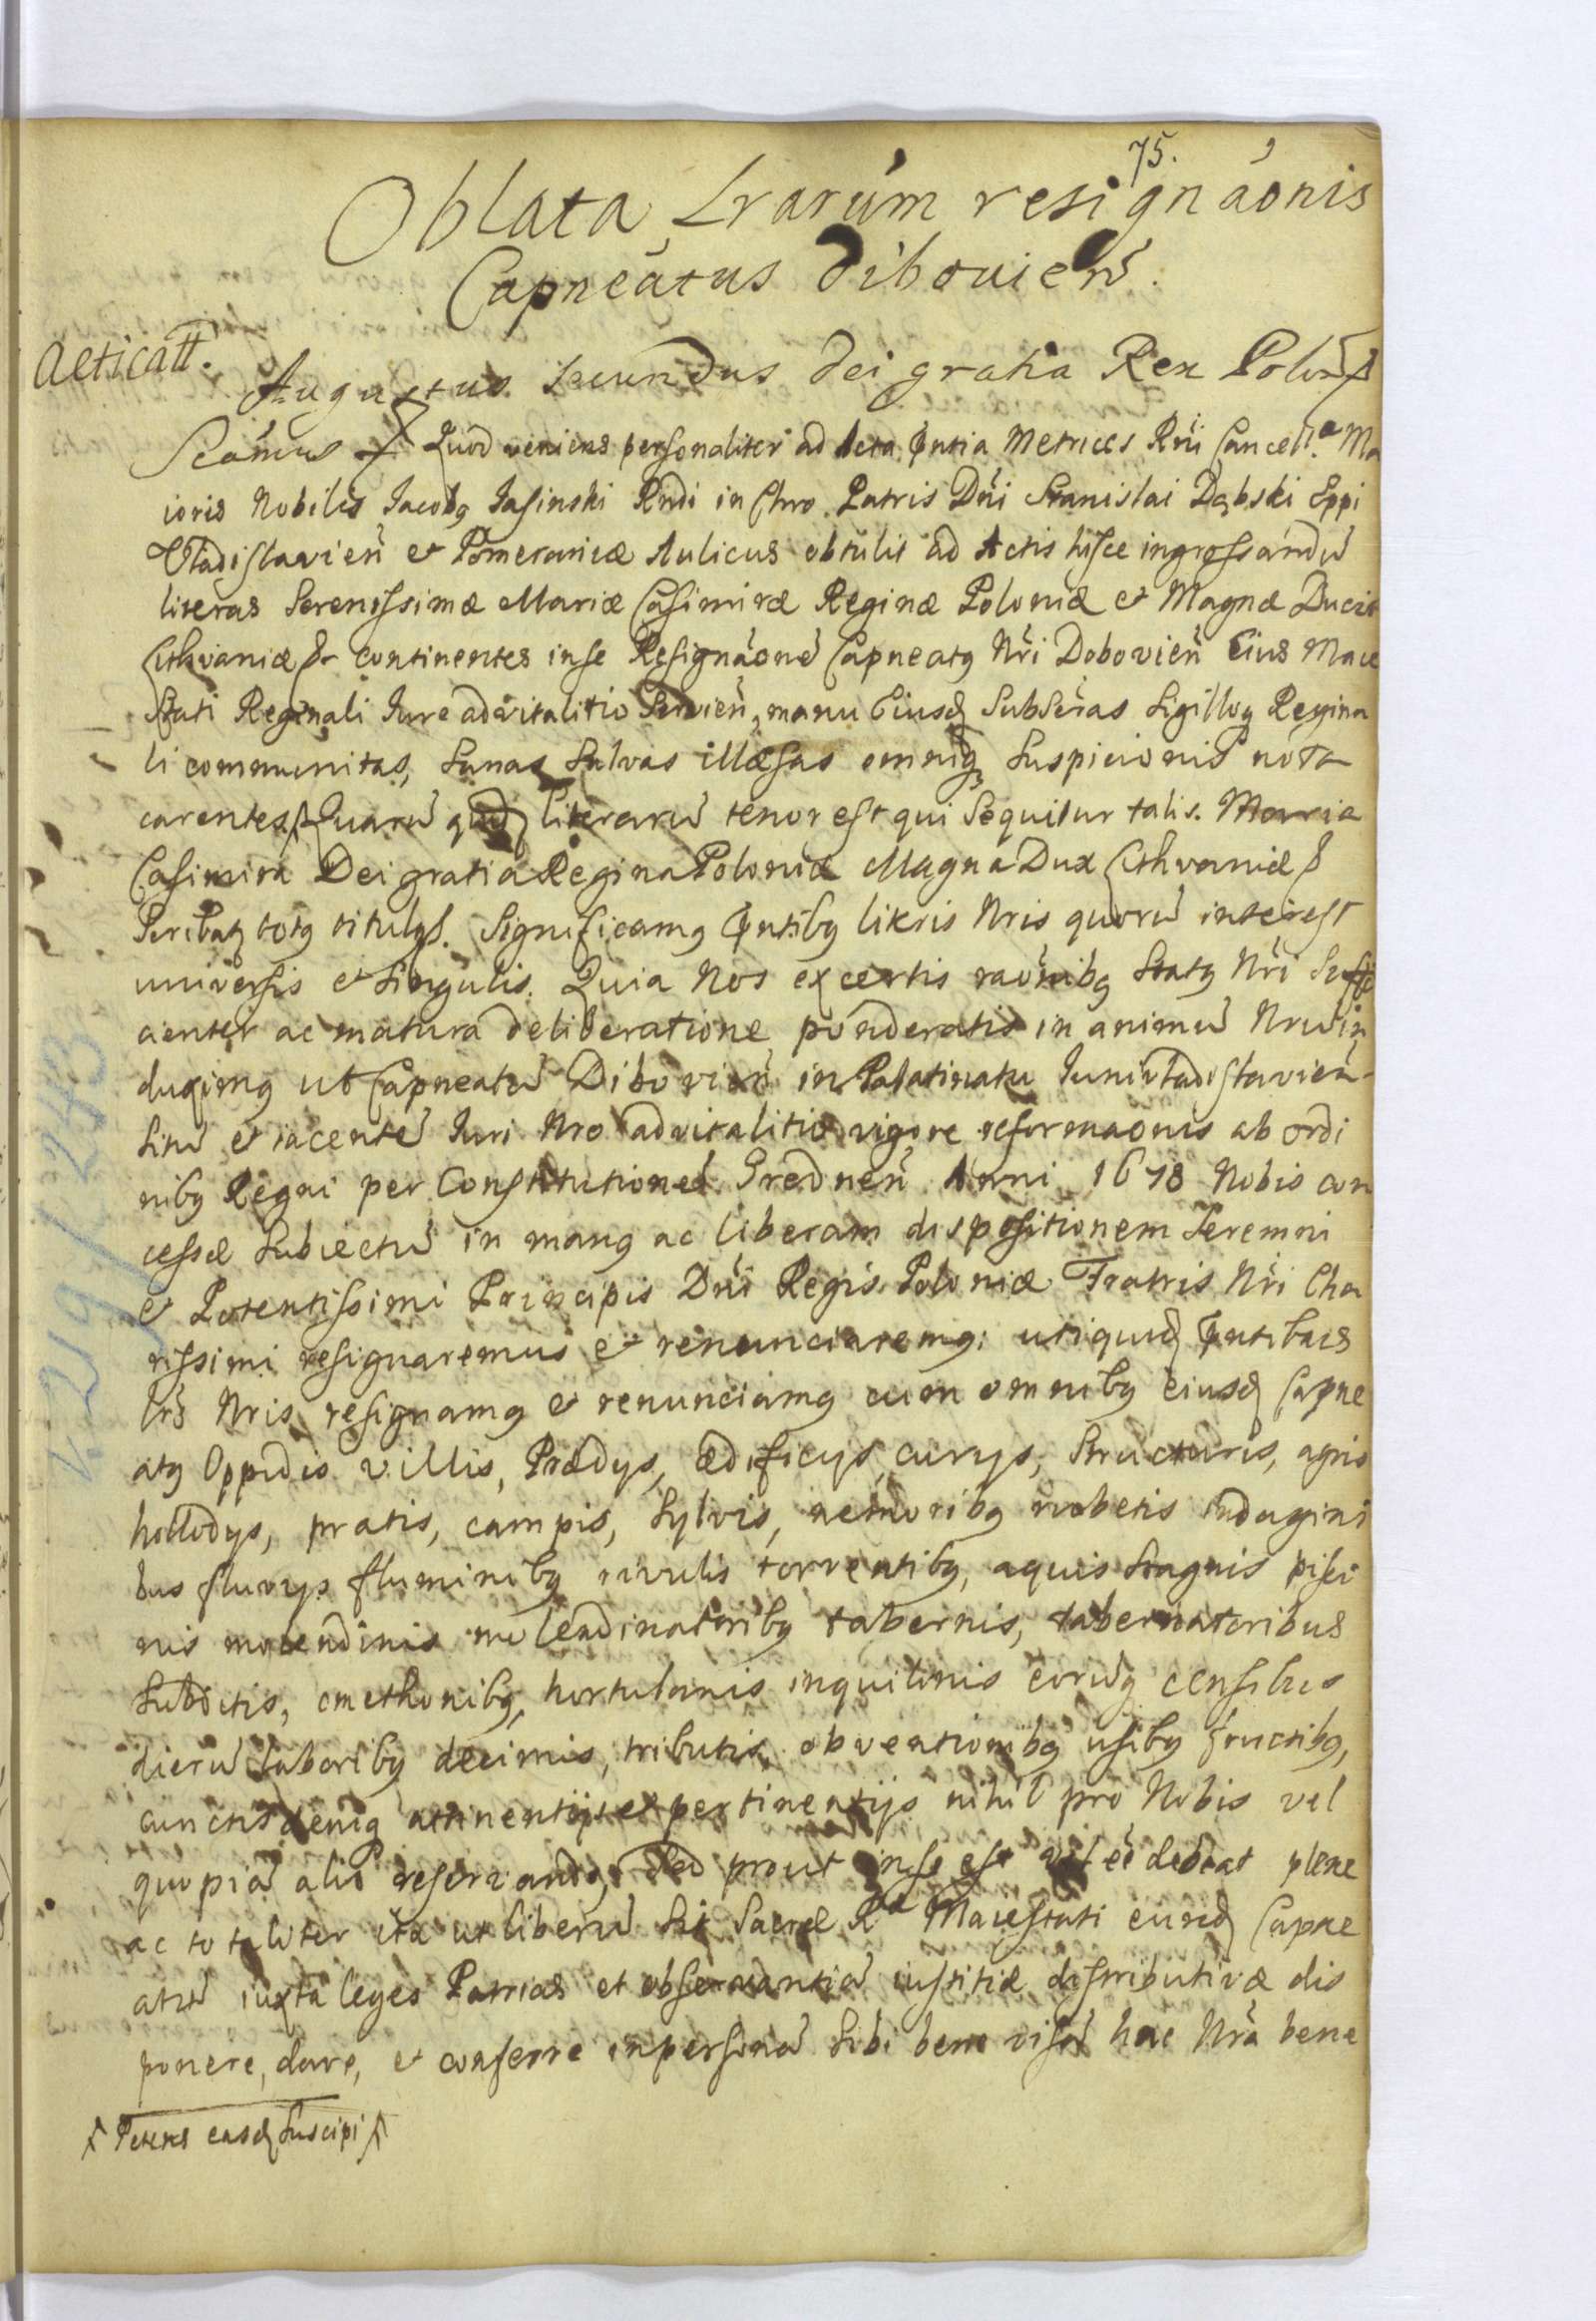 75.
Oblata Lrarum resignãonis
Capneatus Dibovieñ.
Acticatt.
Augustus Secundus Dei gratia Rex Poloñ
Quod veniens personaliter ad Acta Pntia Metrices Rni Cancell.a Ma
ioris Nobilis Jacobq Jasinski Rndi in Chro Patris Dni Stanislai Dąbski Eppi
Vladislavieñ et Pomeraniæ Aulicus obtulit ad Actis hisce ingrossandũ
literas Serenissimæ Mariæ Casimiræ Reginæ Poloniæ et Magnæ Ducis
Lithvaniæ & continentes in se Resignãonẽ Capneatq Nri Dobovieñ Eius Maie
stati Reginali Jure advitalitio Servieñ, manu Eiusd Subscras Sigilloq Regina
li communitas, Sanas Salvas illæsas omniq Suspicionis nota
carentes Quarũ quid literarũ tenor est qui Sequitur talis. Maria
Casimira Dei gratia Regina Poloniæ Magna Dux Lithvaniæ &
Scribatq totq titulq. Significamq Pntibq literis Nris quorũ interest
universis et Singulis. Quia Nos ex certis raõnibq Statq Nri Suffi
cienter ac matura deliberatione ponderatis in animũ Nrũ in
duximq ut Capneatũ Dibovieñ in Palatinatu Juniuladislavieñ
Sitũ et iacentẽ Juri Nro advitalitio vigore reformaonis ab ordi
nibq Regni per Constitutiones Grodneñ Anni 1678 Nobis con
cessæ Subiectũ in manq ac liberam dispositionem Seremni
et Potentissimi Principis Dni Regis Poloniæ Fratris Nri Cha
rissimi resignaremus et renunciaremq: utiquid Pntibus
lrs Nris resignamq et renunciamq cum omnibq eiusd Capne
atq Oppidis villis, Prædys, ædificys, curys, Structuris, agris
hortodys, pratis, campis, Sylvis, nemoribq rubetis indagini
bus fluvys fluminibq rivulis torrentibq, aquis Stagnis pisci
nis molendinis molendinatoribq tabernis, tabernatoribus
Subditis, cmethonibq, hortulanis inquilinis eorũq censibus
dierũ laboribq decimis, tributis, obventionibq usibq fructibq,
cunctis deniq attinentijs et pertinentijs nihil pro Nobis vel
quopiã alio reservando, Sed prout in se est vel eẽ debeat plene
ac totaliter ita ut liberũ Sit Sacræ Ræ Maiestati eund Capne
atũ iuxta leges Patrias et observantiã iustitiæ distributivæ dis
ponere, dare, et conferre in personã Sibi bene visã hac Nra bene
Petens easd Suscipi
v. 219/243